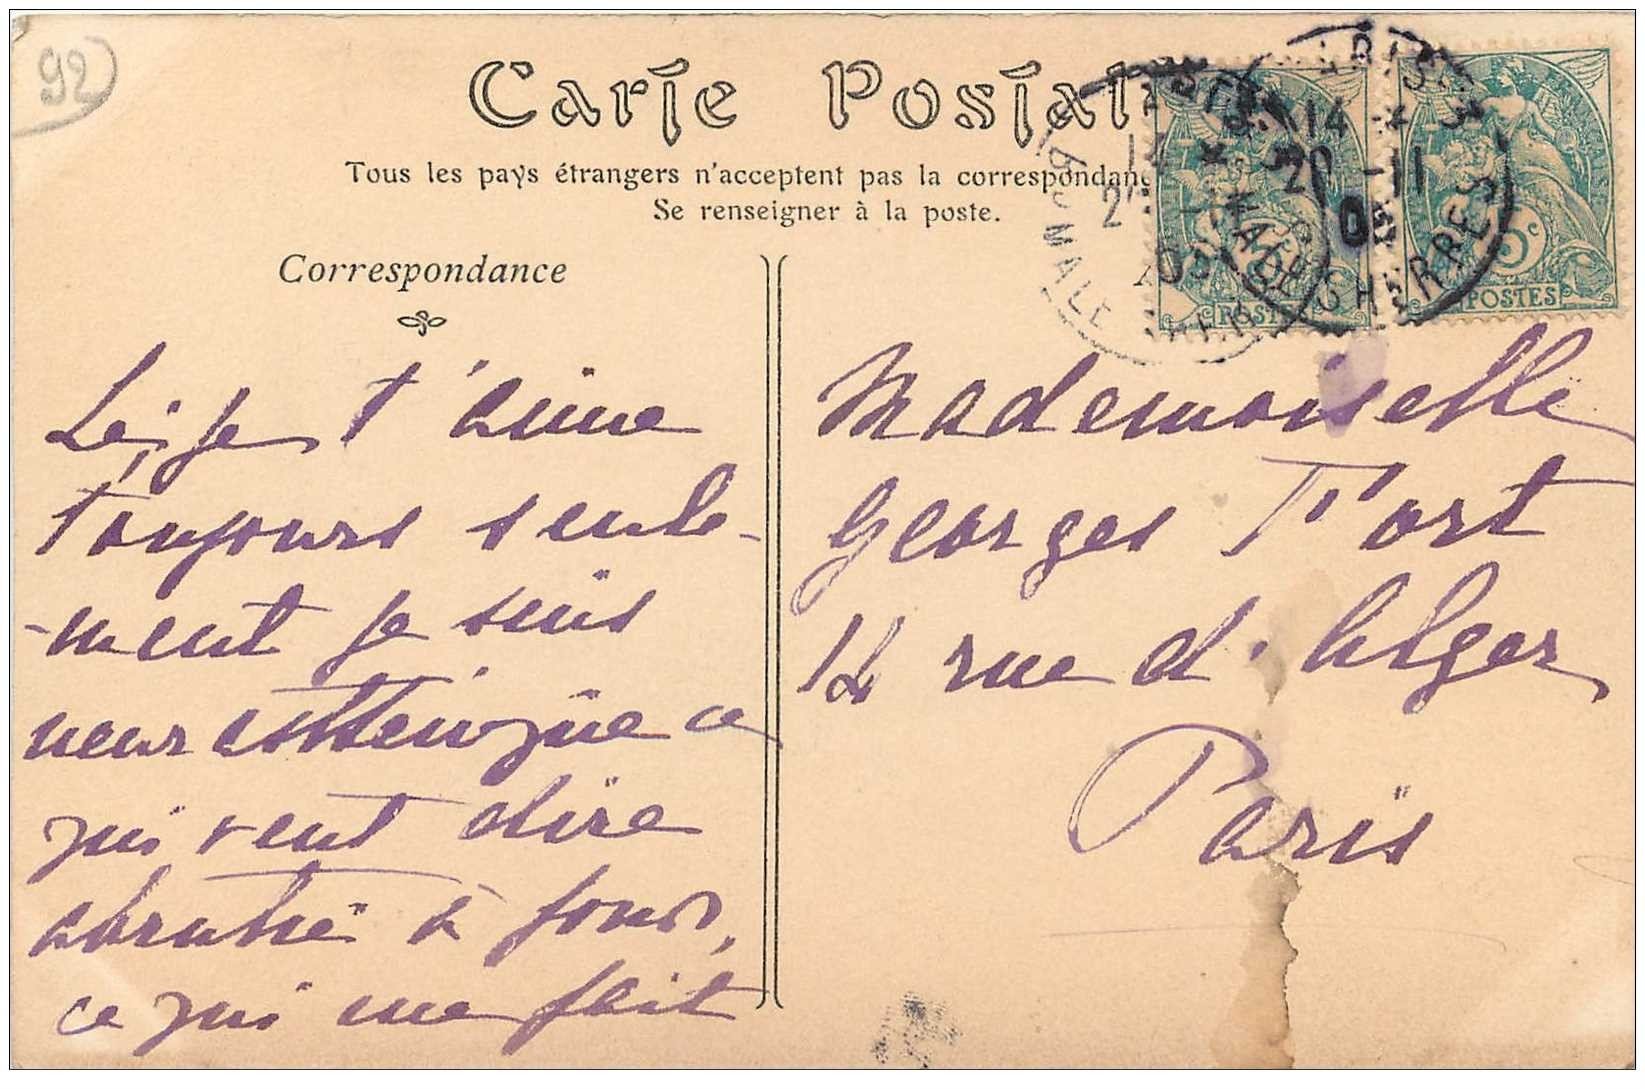 92
Carte Postal
Tous les pays étrangers n'acceptent pas la correspondanc
Se renseigner à la poste.
Correspondance
je t'aime
toujours seule-
-ment je suis
neurasthénique ce
qui veut dire
abrutie à fond,
ce qui me fait
Mademoiselle
Georges Fort
12 rue d'Alger
Paris
5c
POSTES
POSTES